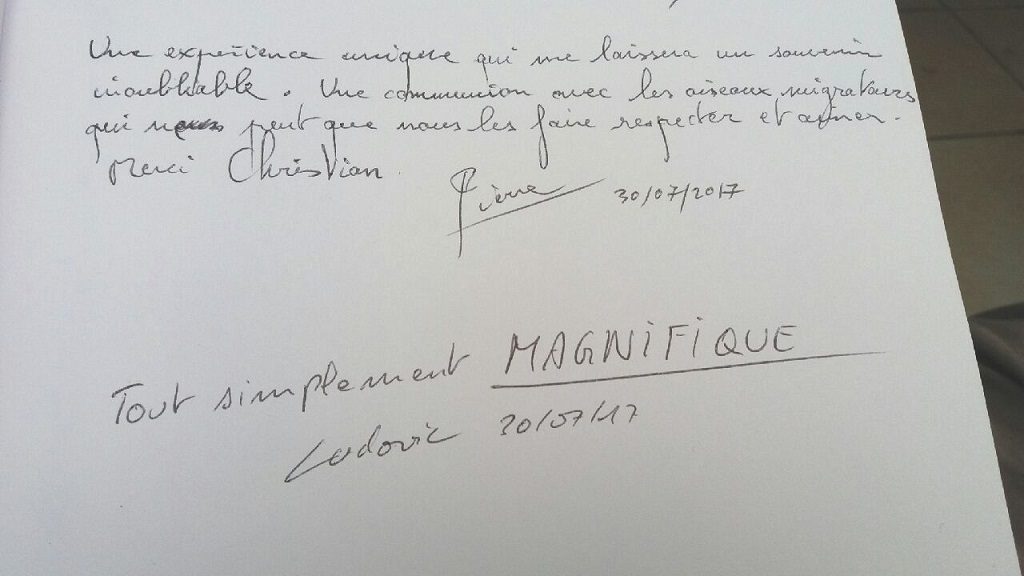 Une experience unique qui me laissera un souvenir
inoubliable. Une communion avec les oiseaux migrateurs
qui ne peut que nous les faire respecter et aimer.
Merci Christian
Pierre 30/07/2017
Tout simplement MAGNiFiQUE
Ludovic 30/07/17